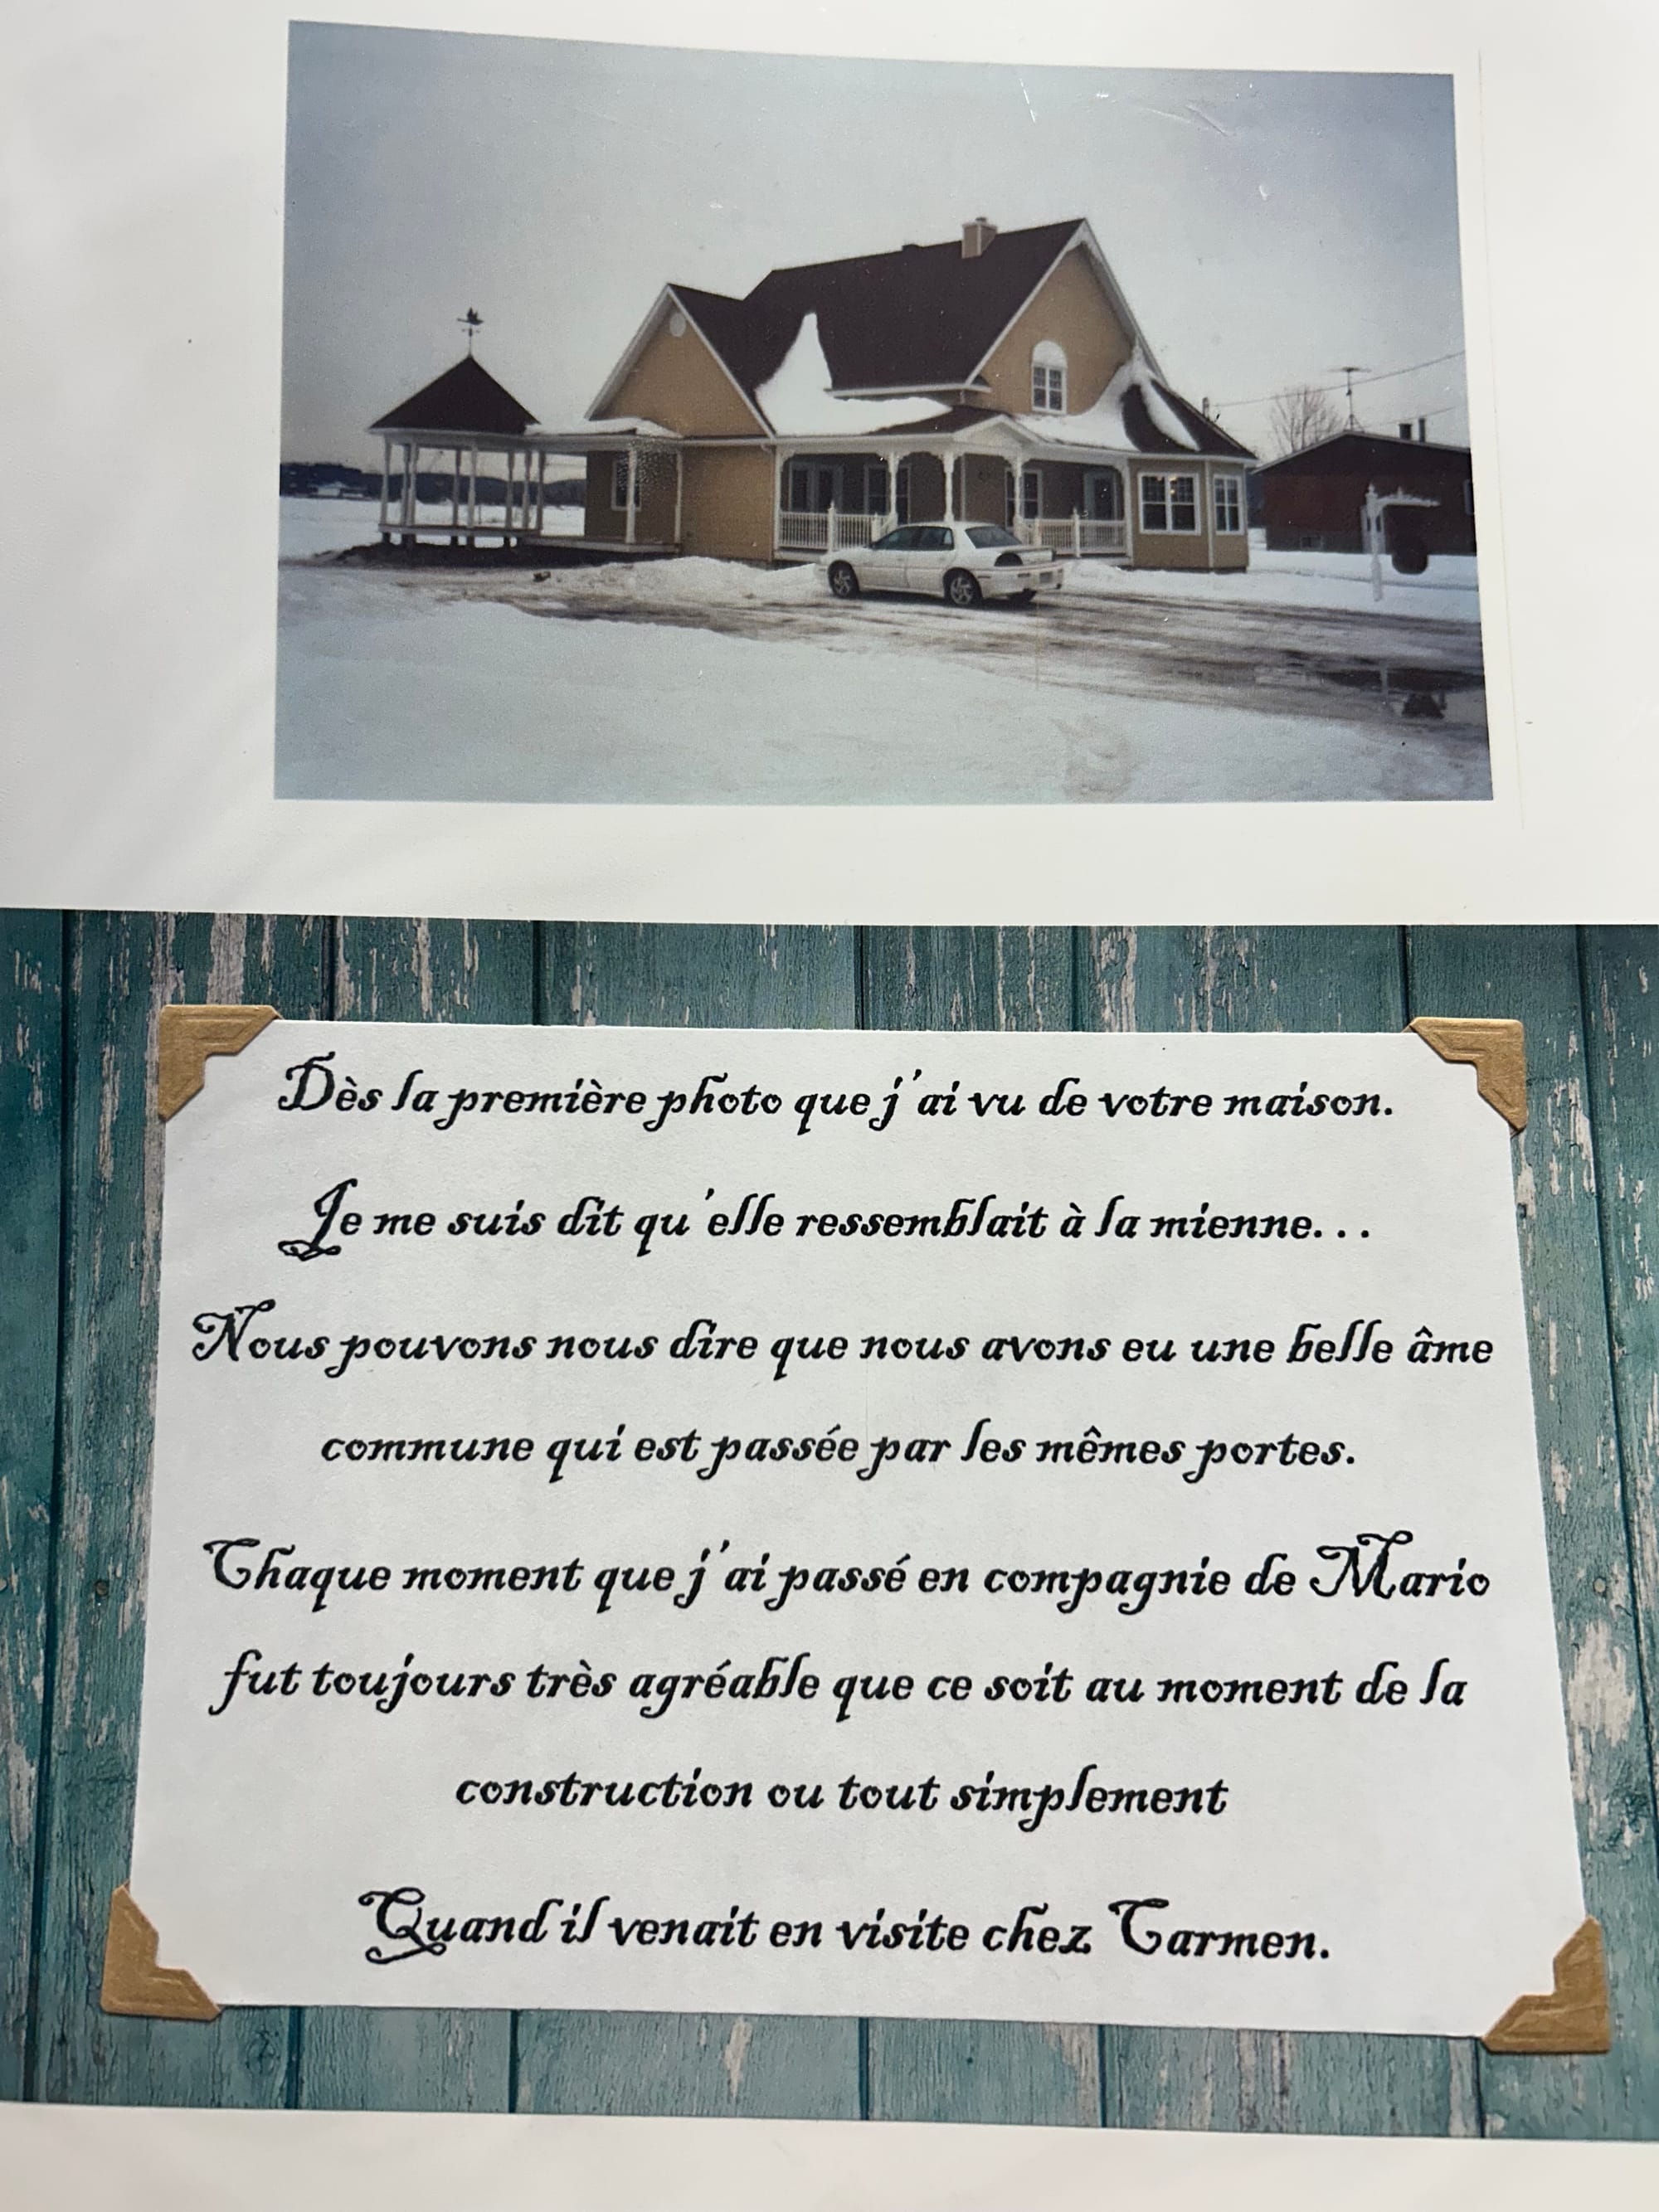 Dès la première photo que j'ai vu de votre maison.
Je me suis dit qu'elle ressemblait à la mienne...
Nous pouvons nous dire que nous avons eu une belle âme
commune qui est passée par les mêmes portes.
Chaque moment que j'ai passé en compagnie de Mario
fut toujours très agréable que ce soit au moment de la
construction ou tout simplement
Quand il venait en visite chez Carmen.